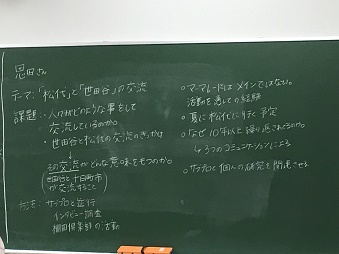 恩田さん
テーマ:「松代」と「世田谷」の交流
課題:・人々はどのような事をして
交流しているのか。
・世田谷と松代の交流のきっかけ
その交流がどんな意味をもつのか。
(世田谷と十日町市
が交流すること)
方法:サブプロと並行
インタビュー調査
棚田倶楽部の活動
○マーマレードはメインではない。
活動を通しての経験
○夏に松代に行く予定
○なぜ10年以上繰り返されるのか。
↳3つのコミュニケーションによる
○サブプロと個人の研究を関連させる